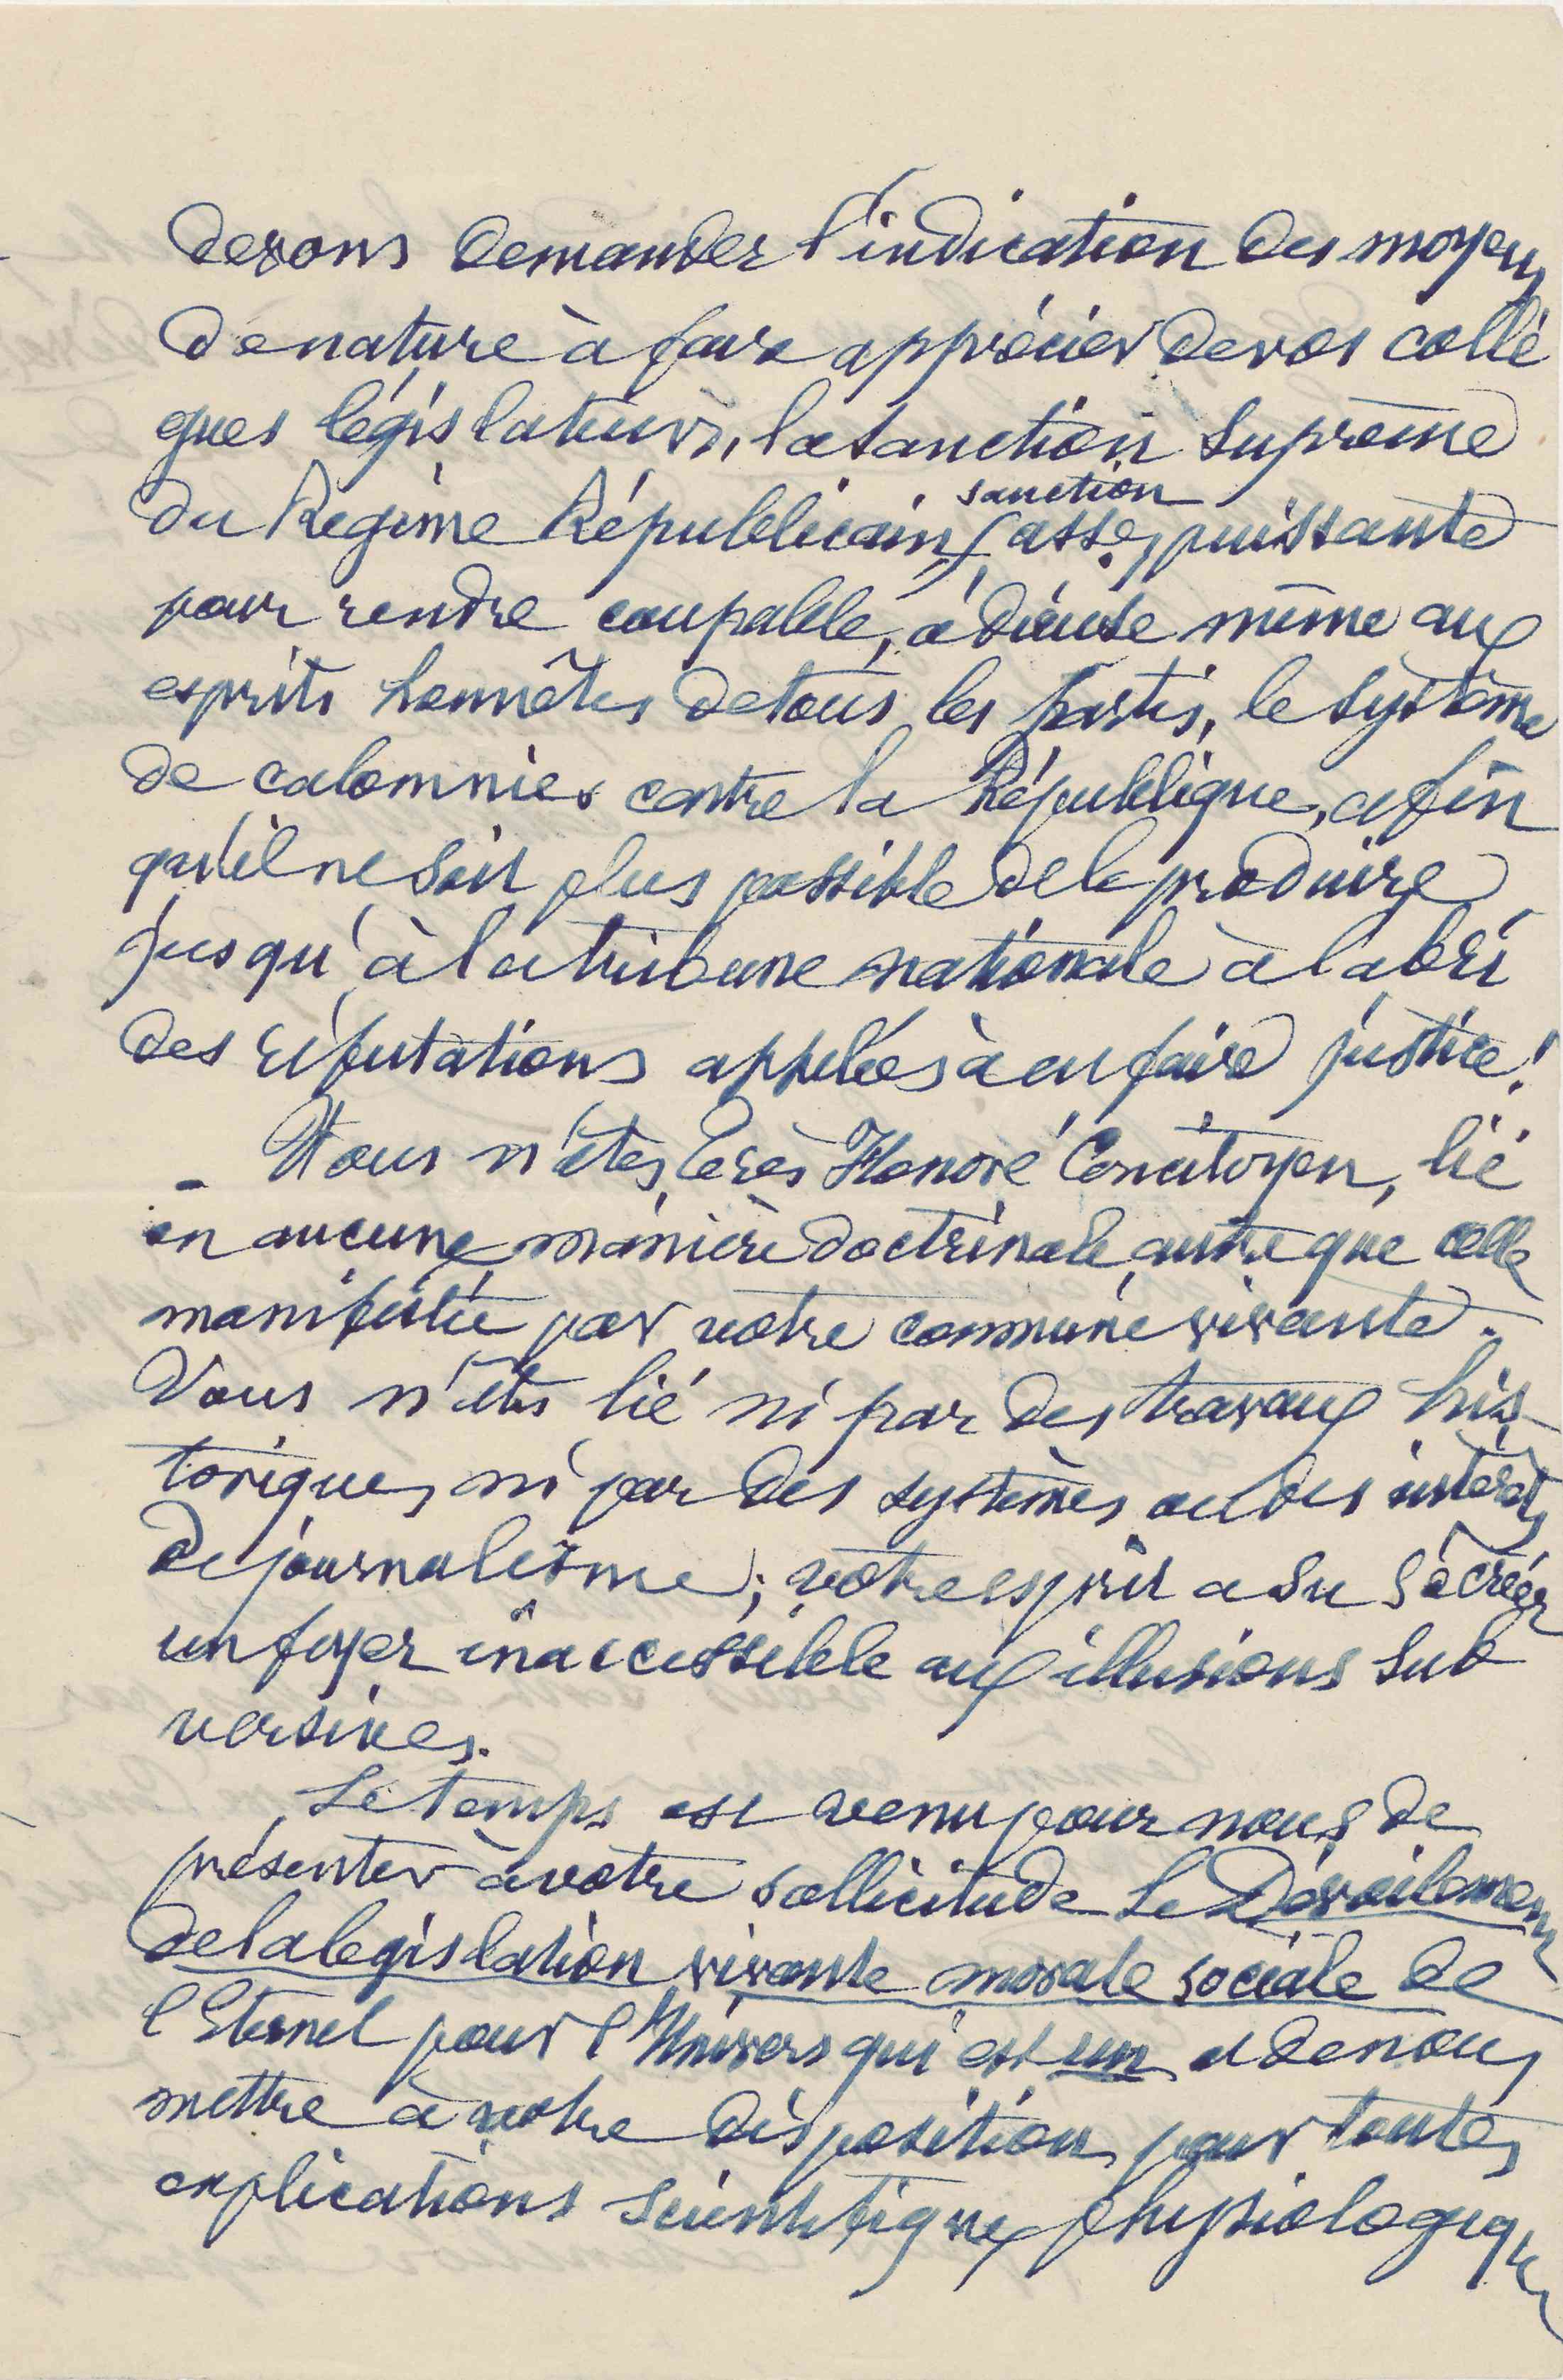 devons demander l'indication des moyens
de nature à faire apprécier de vos collè
gues législateurs, la sanction suprème
du Régime Républicain, sanction assez puissante
pour rendre coupable, odieuse même aux
esprits honnêtes de tous les partis, le système
de calomnies contre la République, afin
qu'il ne soit plus possible de le produire
jusqu'à la tribune nationale à l'abri
des réfutations appelées à en faire justice!
- Vous n'êtes, très Honoré Concitoyen, lié
en aucune manière doctrinale autre que celle
manifestée par votre commune vivante.
Vous n'êtes lié ni par des travaux his
toriques, ni par des systèmes ou des intérêts
de journalisme; votre esprit a su se créer
un foyer inaccessible aux illusions sub
versives.
Le temps est venu pour nous de
présenter à votre sollicitude Le Dévoilement
de la législation vivante morale sociale de
l'Eternel pour l'Univers qui est un et de nous
mettre à votre disposition pour toutes
explications scientifiques physiologiques